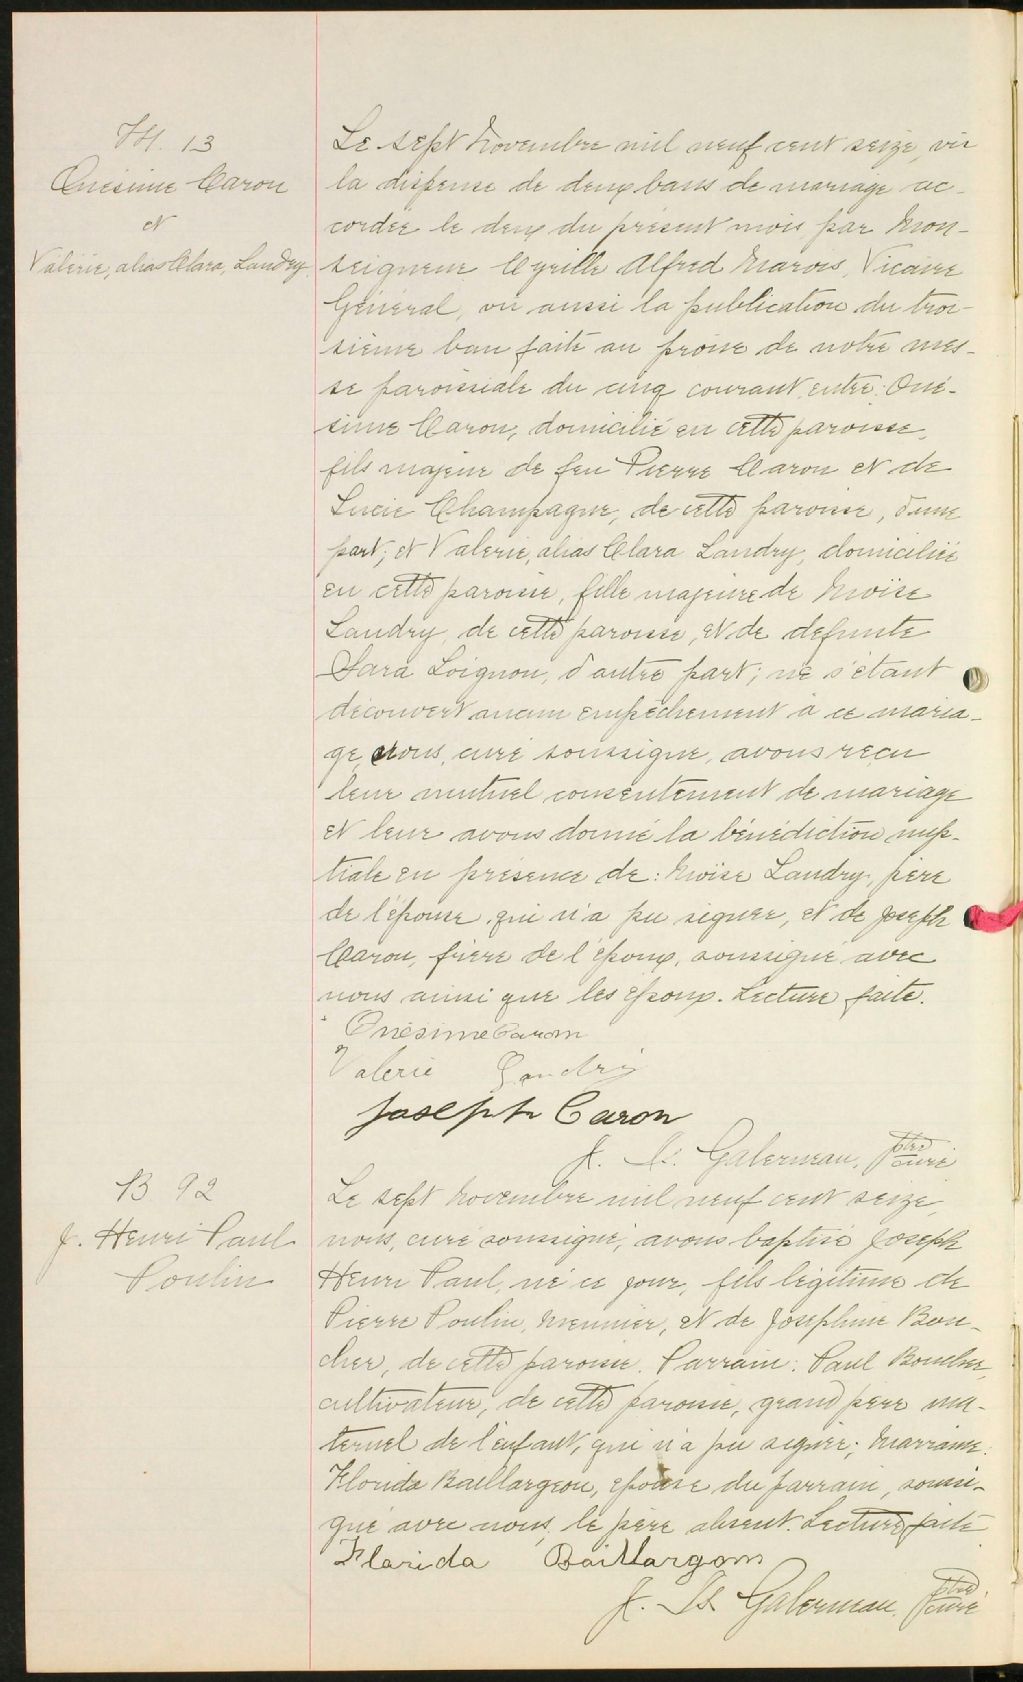 M. 13
Onésime Caron
et
Valérie, alias Clara, Landry.
Le sept Novembre mil neuf cent seize, vu
la dispense de deux bans de mariage ac-
cordée le deux du présent mois par Mon-
seigneur Cyrille Alfred Marois, Vicaire
Général, vu aussi la publication du troi-
sième ban faite au prône de notre mes-
se paroissiale du cinq courant, entre: Oné-
sime Caron, domicilié en cette paroisse,
fils majeur de feu Pierre Caron et de
Lucie Champagne, de cette paroisse, d'une
part; et Valérie, alias Clara Landry, domiciliée
en cette paroisse, fille majeure de Moïse
Landry, de cette paroisse, et de defunte
Sara Loignon, d'autre part; ne s'étant
découvert aucun empêchement à ce maria-
ge, nous, curé soussigné, avons reçu
leur mutuel consentement de mariage
et leur avons donné la bénédiction nup-
tiale en présence de: Moïse Landry, père
de l'épouse qui n'a pu signer, et de Joseph
Caron, frère de l'époux, soussigné avec
nous ainsi que les époux. Lecture faite.
Onésime Caron
Valerie Landry
Joseph Caron
J. Galerneau, ptre curé
B 92
J. Henri Paul
Poulin
Le sept Novembre mil neuf cent seize,
nous, curé soussigné, avons baptisé Joseph
Henri Paul, né ce jour, fils légitime de
Pierre Poulin, Meunier, et de Joséphine Bou-
cher, de cette paroisse. Parrain: Paul Boucher,
cultivateur, de cette paroisse, grand père ma-
ternel de l'enfant, qui n'a pu signer; Marraine:
Florida Baillargeon, épouse du parrain, soussi-
gné avec nous, le père absent. Lecture faite
Florida Baillargeon
J. Galerneau, ptre curé